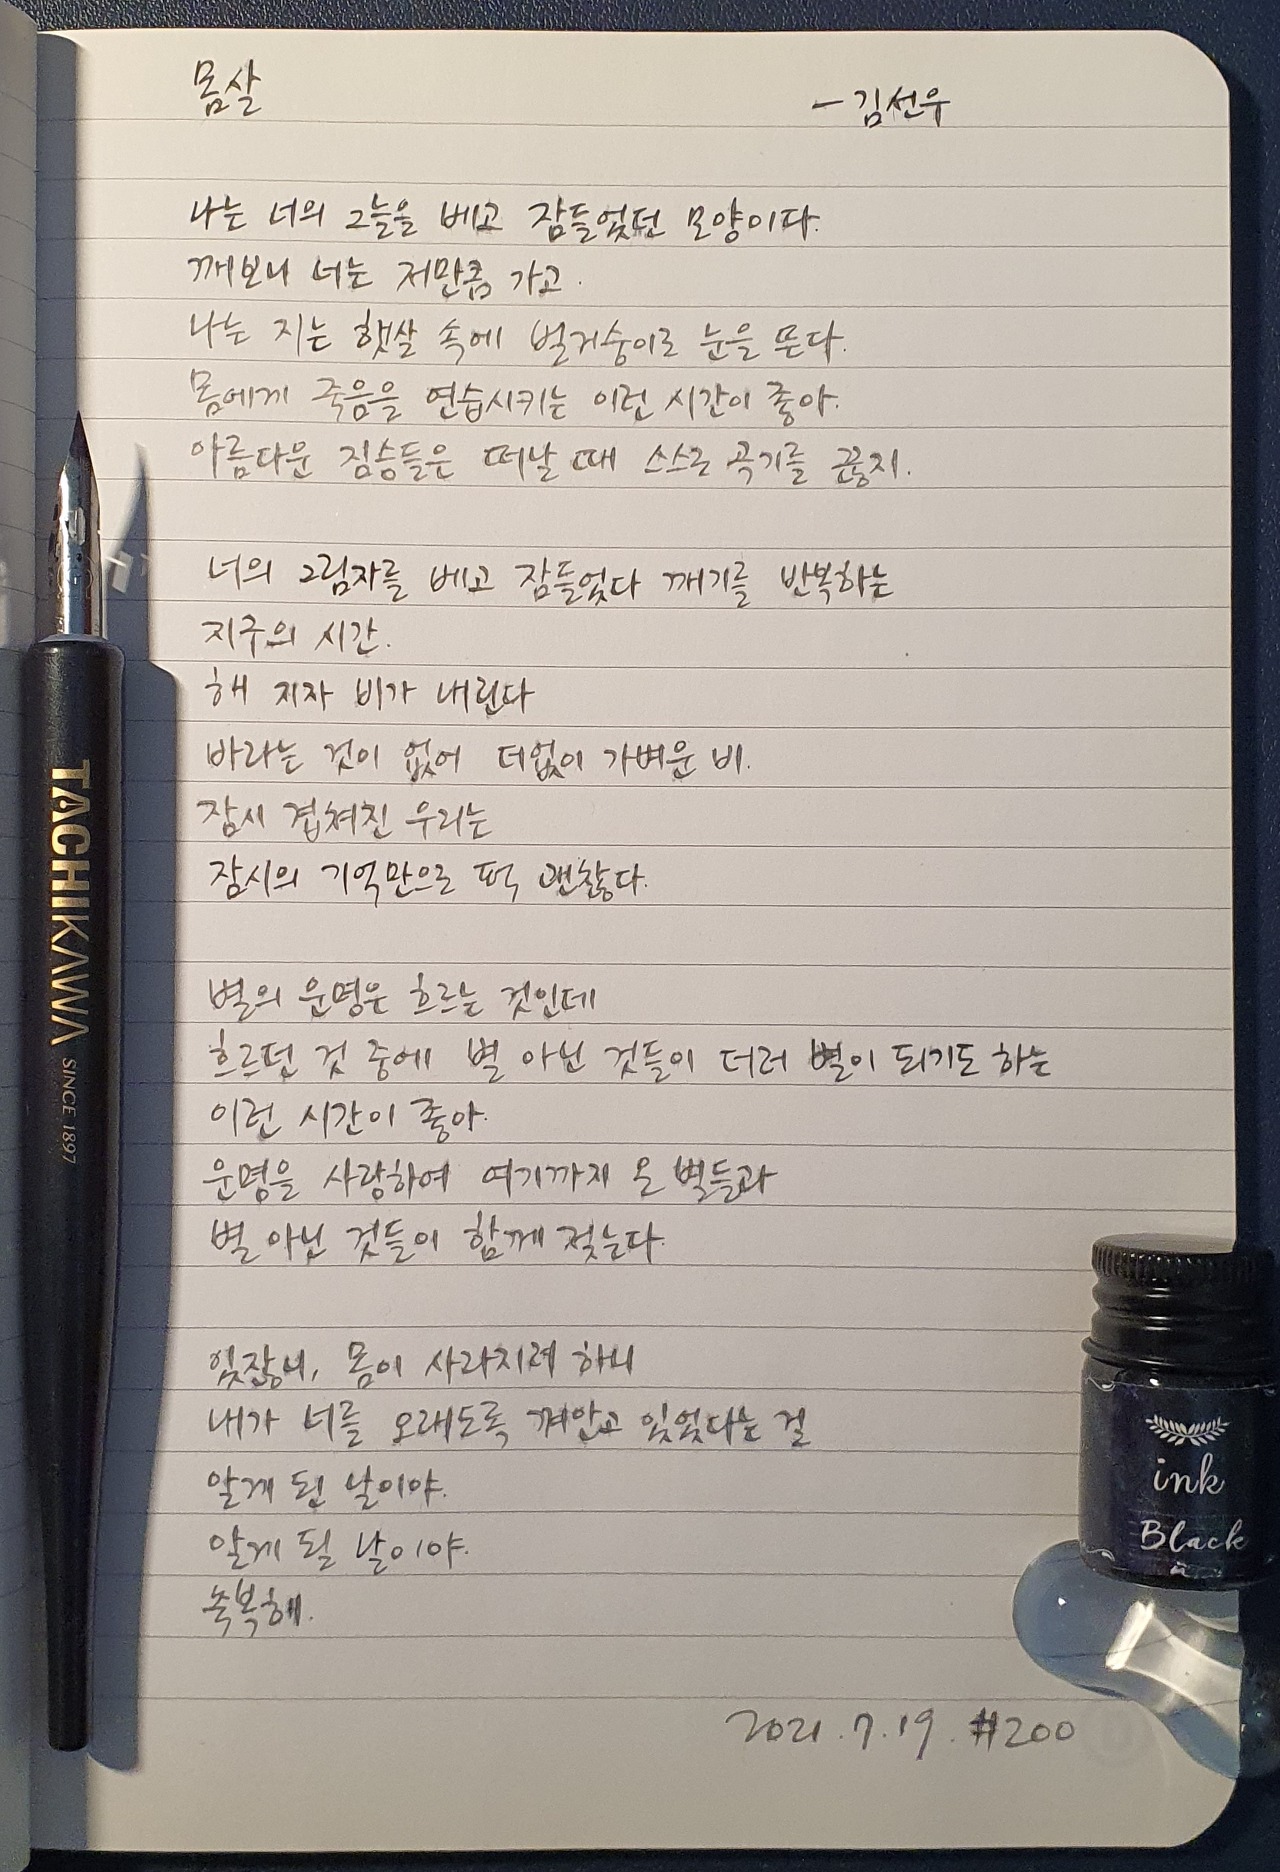 몸살
- 김선우
나는 너의 그늘을 베고 잠들었던 모양이다.
깨보니 너는 저만큼 가고.
나는 지는 햇살 속에 벌거숭이로 눈을 뜬다.
몸에게 죽음을 연습시키는 이런 시간이 좋아.
아름다운 짐승들은 떠날 때 스스로 곡기를 끊지.
너의 그림자를 베고 잠들었다 깨기를 반복하는
지구의 시간.
해 지자 비가 내린다
바라는 것이 없어 더없이 가벼운 비.
잠시 겹쳐진 우리는
잠시의 기억만으로 퍽 괜찮다.
별의 운명은 흐르는 것인데
흐르던 것 중에 별 아닌 것들이 더러 별이 되기도 하는
이런 시간이 좋아.
운명을 사랑하여 여기까지 온 별들과
별 아닌 것들이 함께 젖는다.
있잖니, 몸이 사라지려 하니
내가 너를 오래도록 껴안고 있었다는 걸
알게 된 날이야.
알게 될 날이야.
축복해.
2021.7.19. #200
TACHIKAWA SINCE 1897
ink
Black